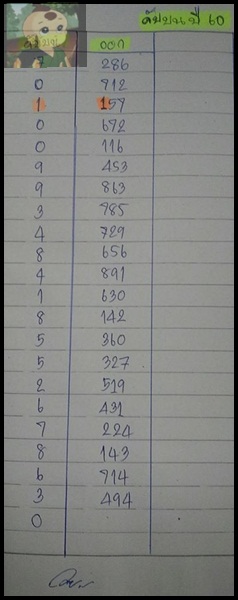 ดับบนปี 60
ออก
286
0 912
1 159
0 692
0 116
9 453
9 863
3 985
4 729
8 656
4 891
1 630
8 142
5 360
5 327
2 519
6 431
7 224
8 143
6 914
3 494
0